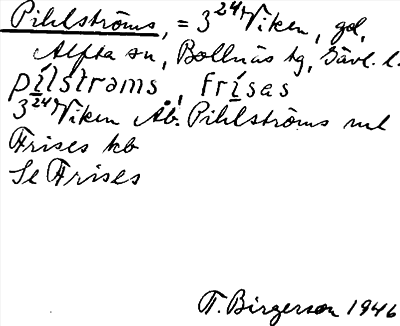 Pihlströms, = 3²⁴ Viken, gd,
Alfta sn, Bollnäs tg, Gävl. l.
pílstrams, frísas
3²⁴ Viken Åb. Pihlströms ml
Frises kb
Se Frises
T. Birgerson 1946